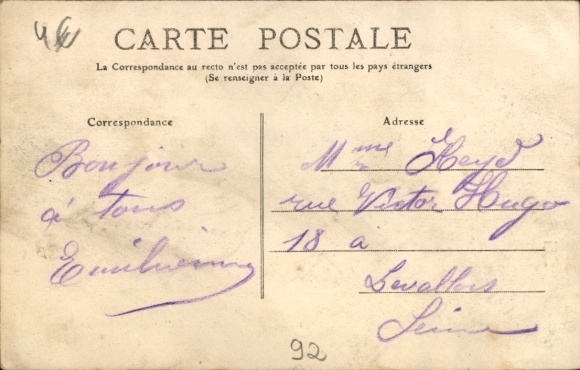 4€
CARTE POSTALE
La Correspondance au recto n'est pas acceptée par tous les pays étrangers
(Se renseigner à la Poste)
Correspondance
Bonjour
à tous
Emilienne
Adresse
Mme Heyd
rue Victor Hugo
18 à
Levallois
Seine
92